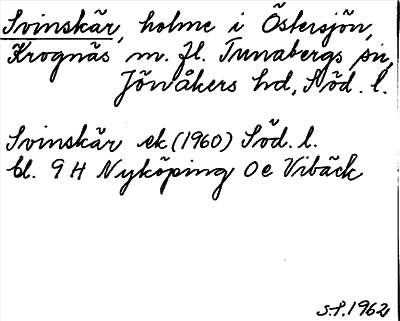 Svinskär, holme i Östersjön,
Krognäs m. fl. Tunabergs sn,
Jönåkers hd, Söd. l.
Svinskär ek (1960) Söd. l.
bl. 9 H Nyköping 0 e Vibäck
S.F. 1962